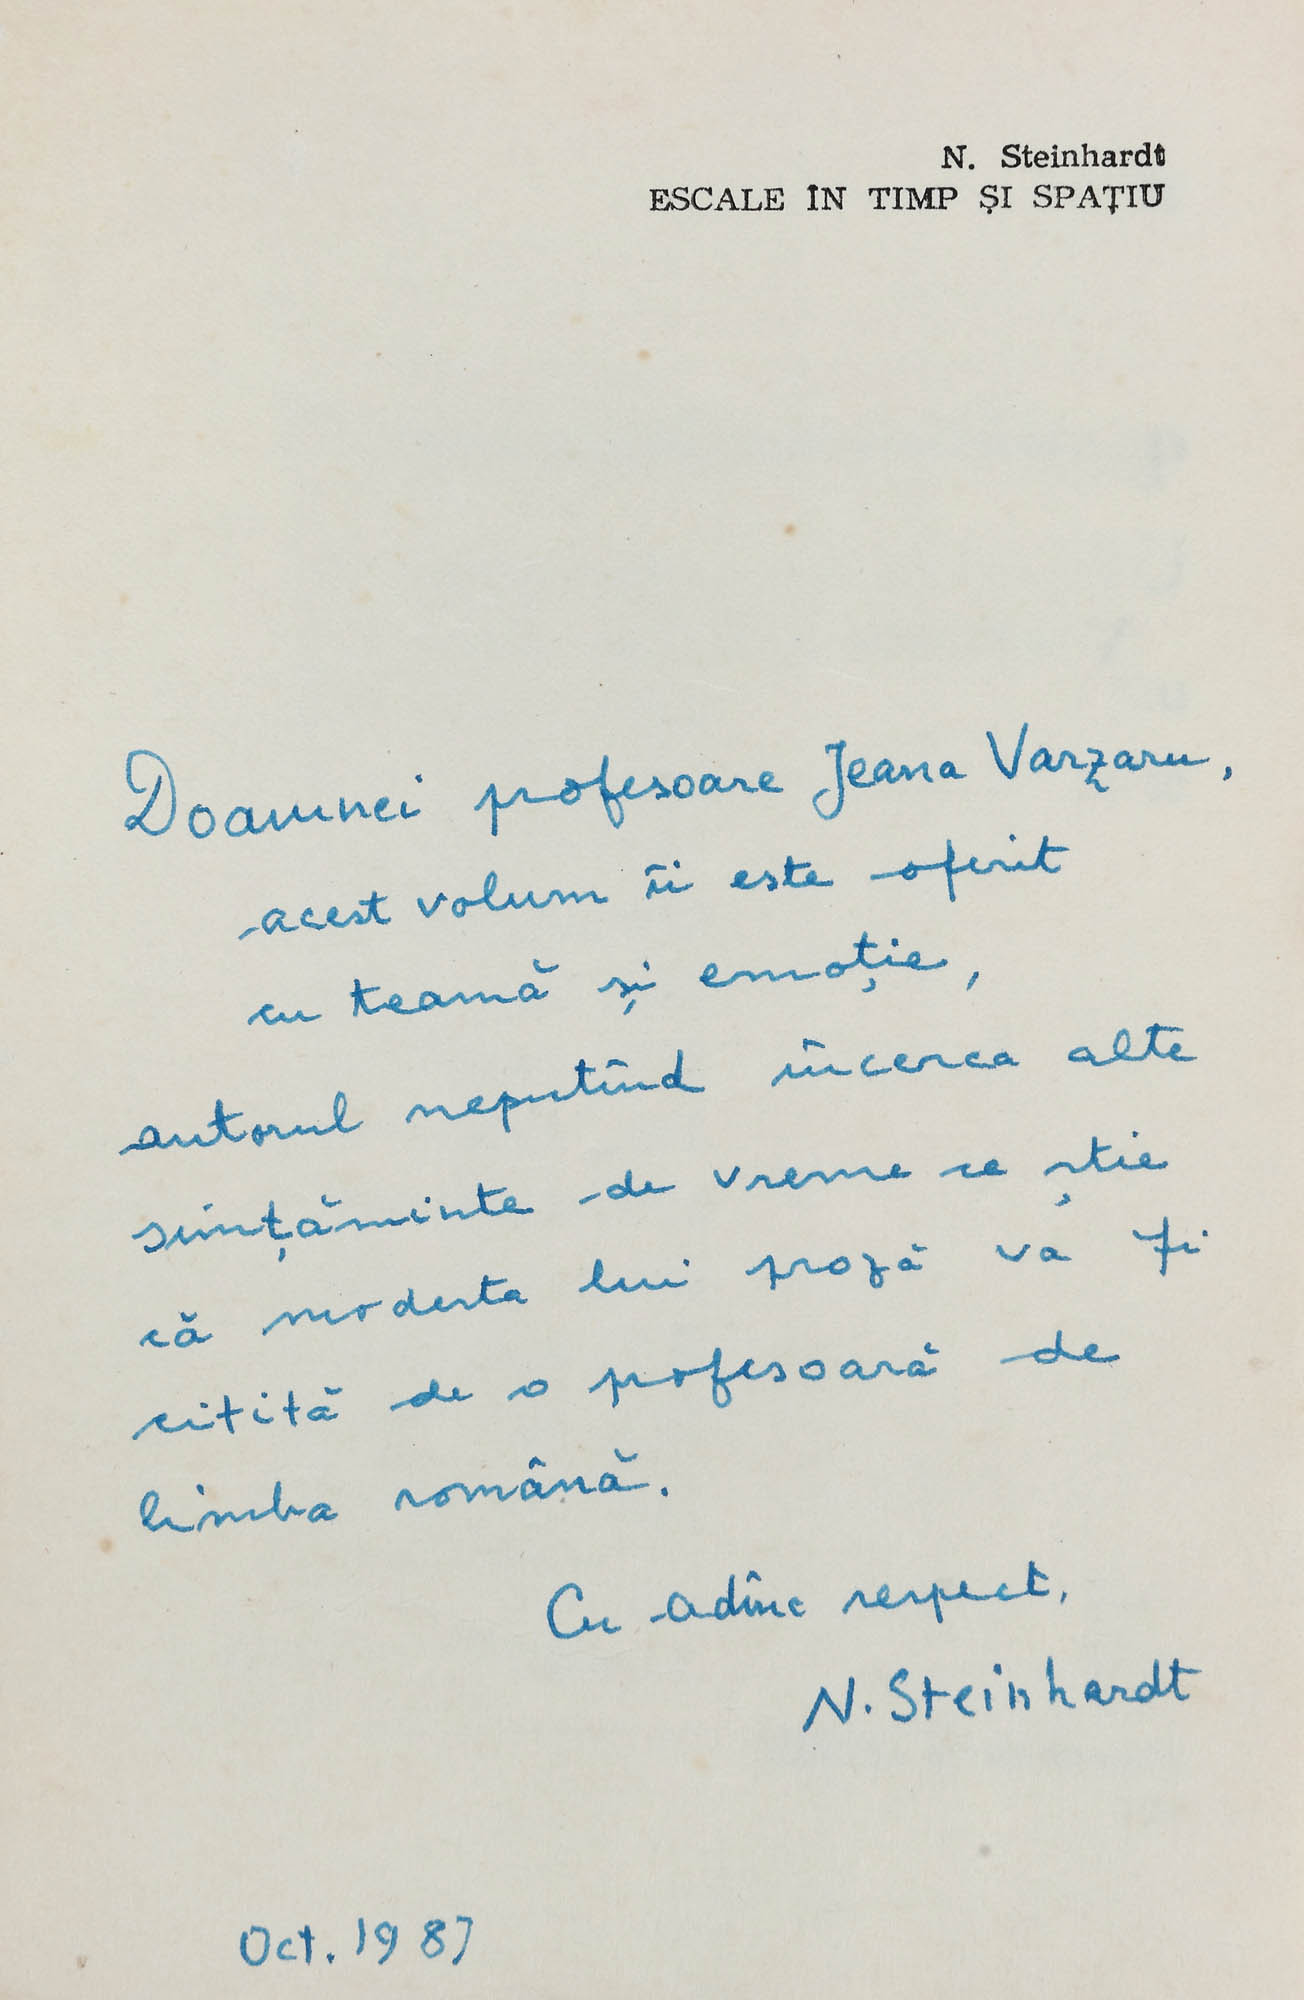 N. Steinhardt
ESCALE ÎN TIMP ȘI SPAȚIU
Doamnei profesoare Jeana Varzaru,
acest volum îi este oferit
cu teamă și emoție,
autorul neputînd încerca alte
simțăminte de vreme ce știe
că modesta lui proză va fi
citită de o profesoară de
limba română.
Cu adînc respect,
N. Steinhardt
Oct. 1987